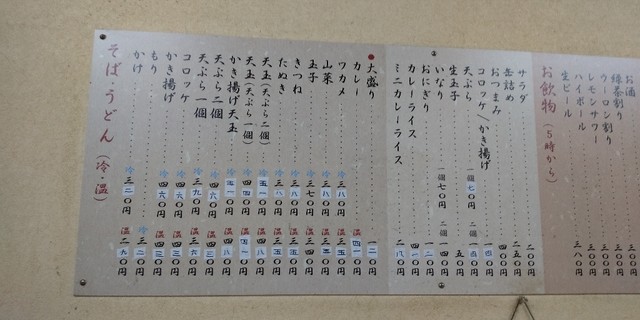 そば・うどん（冷・温）
かけ 冷 三二〇円 温 二九〇円
もり 冷 三二〇円
かき揚げ 冷 四六〇円 温 四三〇円
コロッケ 冷 四六〇円 温 四三〇円
天ぷら一個 冷 三九〇円 温 三六〇円
天ぷら二個 冷 四六〇円 温 四三〇円
かき揚げ天玉 冷 五一〇円 温 四八〇円
天玉（天ぷら一個） 冷 四四〇円 温
天玉（天ぷら二個） 冷 五一〇円 温 四八〇円
たぬき 冷 三八〇円 温 三五〇円
きつね 冷 三八〇円 温 三五〇円
玉子 冷 三七〇円 温 三四〇円
山菜 冷 三八〇円 温 三五〇円
ワカメ 冷 三八〇円 温 三五〇円
カレー 温 四一〇円
●大盛り 一二〇円
ミニカレーライス 二八〇円
カレーライス 四一〇円
おにぎり 一二〇円
いなり 一個 七〇円 二個 一四〇円
生玉子 五〇円
天ぷら 一個 七〇円 二個 一四〇円
コロッケ／かき揚げ 一四〇円
おつまみ 四〇〇円
缶詰め 二五〇円
サラダ 二〇〇円
お飲物（5時から）
生ビール 三八〇円
ハイボール 三〇〇円
レモンサワー 三〇〇円
ウーロン割り 三〇〇円
緑茶割り 三〇〇円
お酒